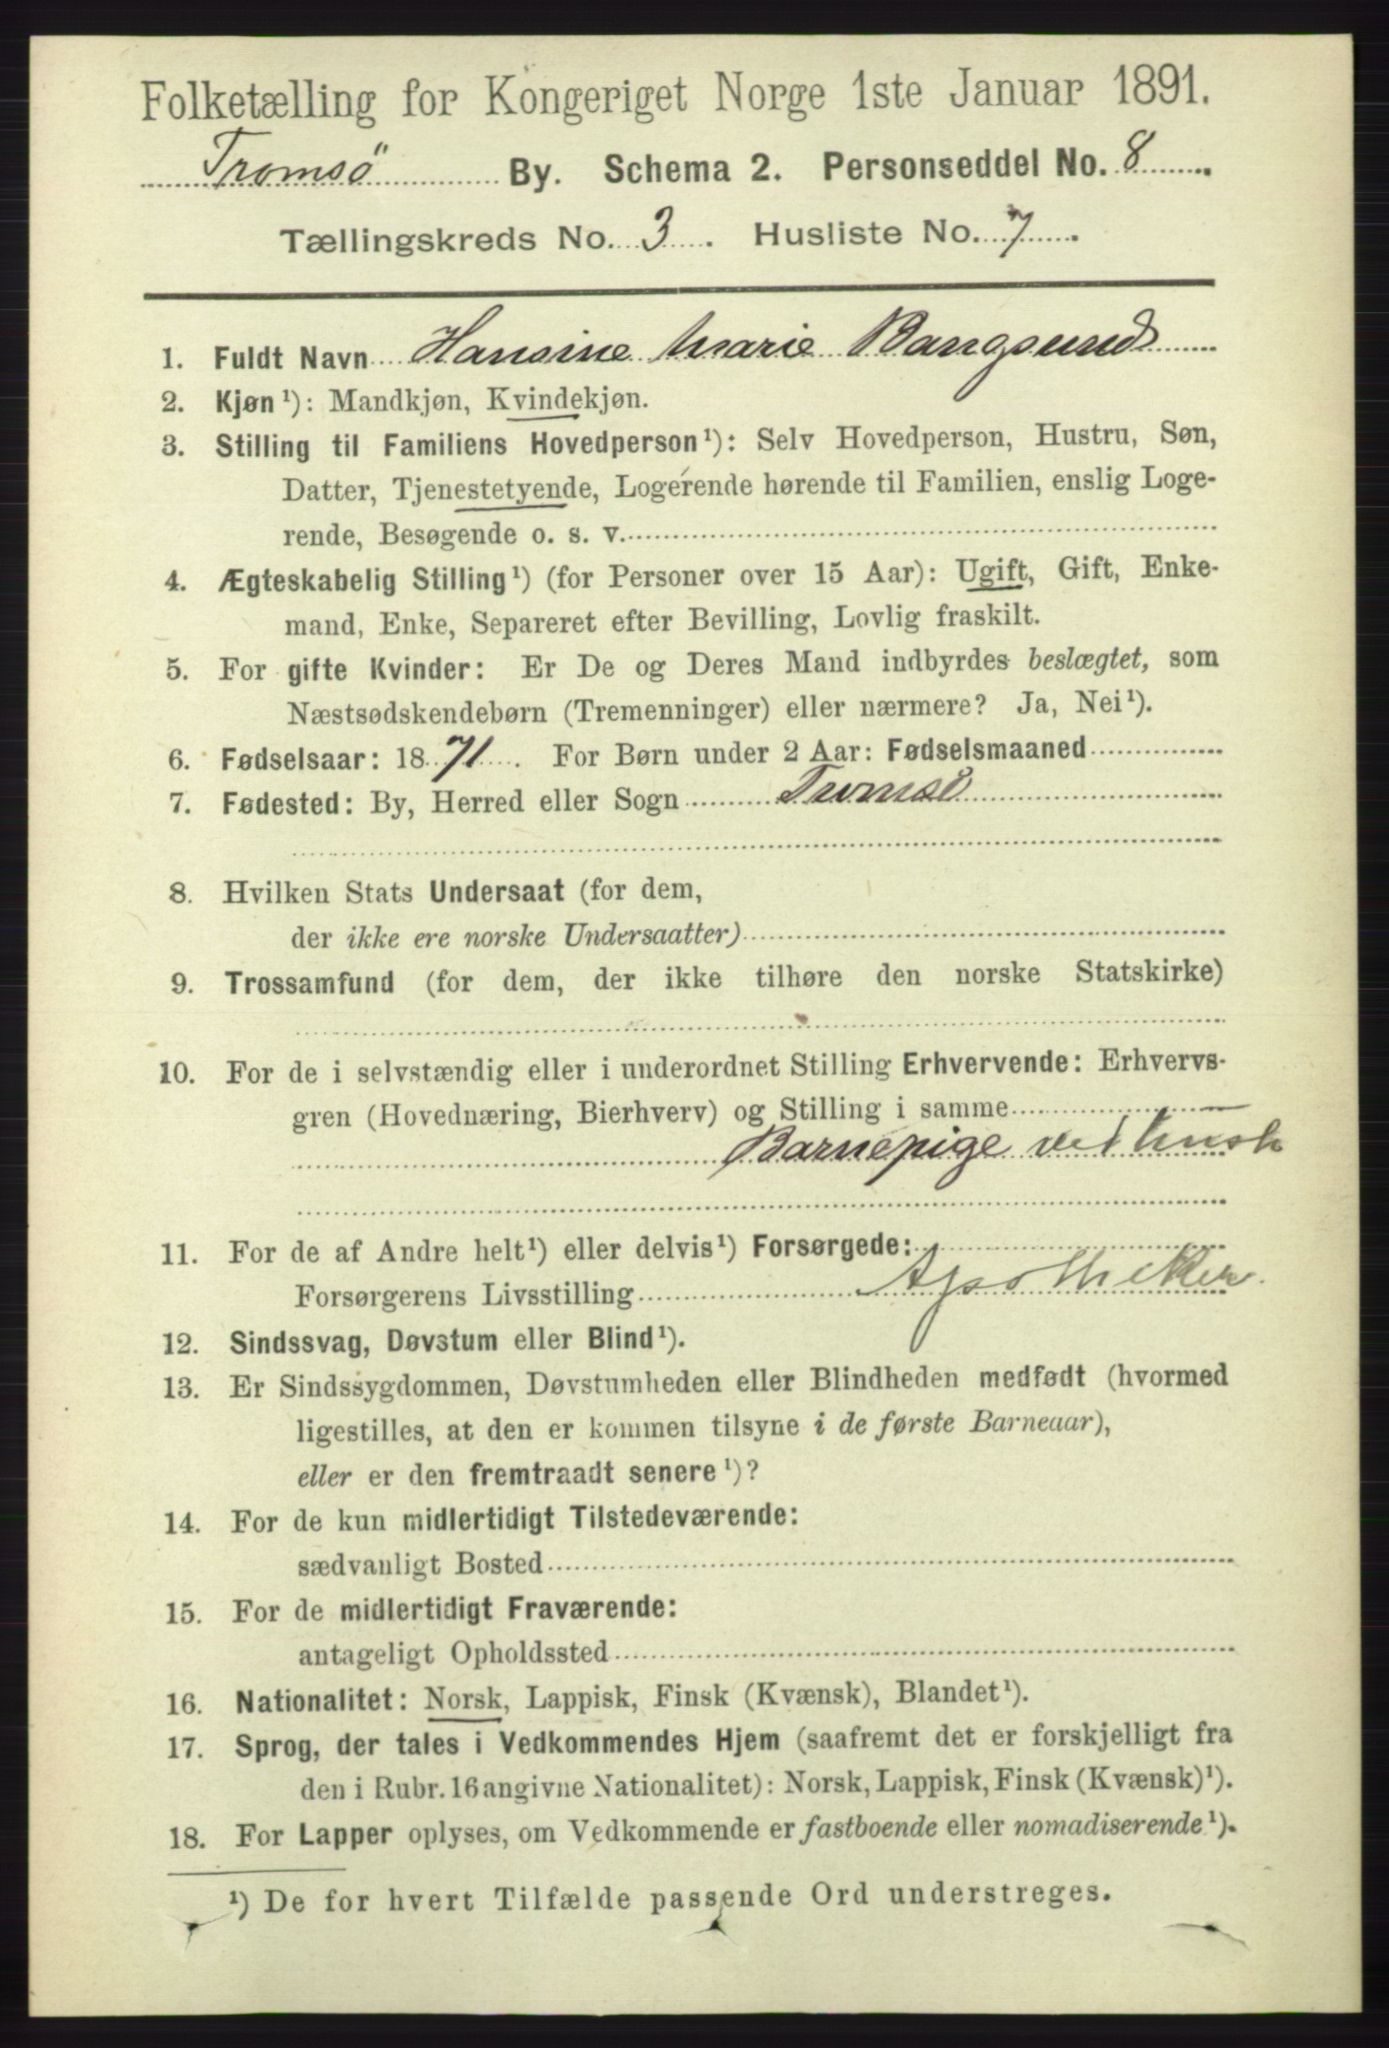 Folketælling for Kongeriget Norge 1ste Januar 1891.
Tromsö By. Schema 2. Personseddel No. 8
Tællingskreds No. 3. Husliste No. 7.
1. Fuldt Navn Hansine Marie Bangsund
2. Kjøn¹): Mandkjøn, Kvindekjøn.
3. Stilling til Familiens Hovedperson¹): Selv Hovedperson, Hustru, Søn,
Datter, Tjenestetyende, Logerende hørende til Familien, enslig Loge-
rende, Besøgende o. s. v.
4. Ægteskabelig Stilling¹) (for Personer over 15 Aar): Ugift, Gift, Enke-
mand, Enke, Separeret efter Bevilling, Lovlig fraskilt.
5. For gifte Kvinder: Er De og Deres Mand indbyrdes beslægtet, som
Næstsødskendebørn (Tremenninger) eller nærmere? Ja, Nei¹).
6. Fødselsaar: 1871. For Børn under 2 Aar: Fødselsmaaned
7. Fødested: By, Herred eller Sogn Tromsö
8. Hvilken Stats Undersaat (for dem,
der ikke ere norske Undersaatter)
9. Trossamfund (for dem, der ikke tilhøre den norske Statskirke)
10. For de i selvstændig eller i underordnet Stilling Erhvervende: Erhvervs-
gren (Hovednæring, Bierhverv) og Stilling i samme
Barnepige
11. For de af Andre helt¹) eller delvis¹) Forsørgede:
Forsørgerens Livsstilling Apotheker.
12. Sindssvag, Døvstum eller Blind¹).
13. Er Sindssygdommen, Døvstumheden eller Blindheden medfødt (hvormed
ligestilles, at den er kommen tilsyne i de første Barneaar),
eller er den fremtraadt senere¹)?
14. For de kun midlertidigt Tilstedeværende:
sædvanligt Bosted
15. For de midlertidigt Fraværende:
antageligt Opholdssted
16. Nationalitet: Norsk, Lappisk, Finsk (Kvænsk), Blandet¹).
17. Sprog, der tales i Vedkommendes Hjem (saafremt det er forskjelligt fra
den i Rubr. 16 angivne Nationalitet): Norsk, Lappisk, Finsk (Kvænsk)¹).
18. For Lapper oplyses, om Vedkommende er fastboende eller nomadiserende¹).
¹) De for hvert Tilfælde passende Ord understreges.